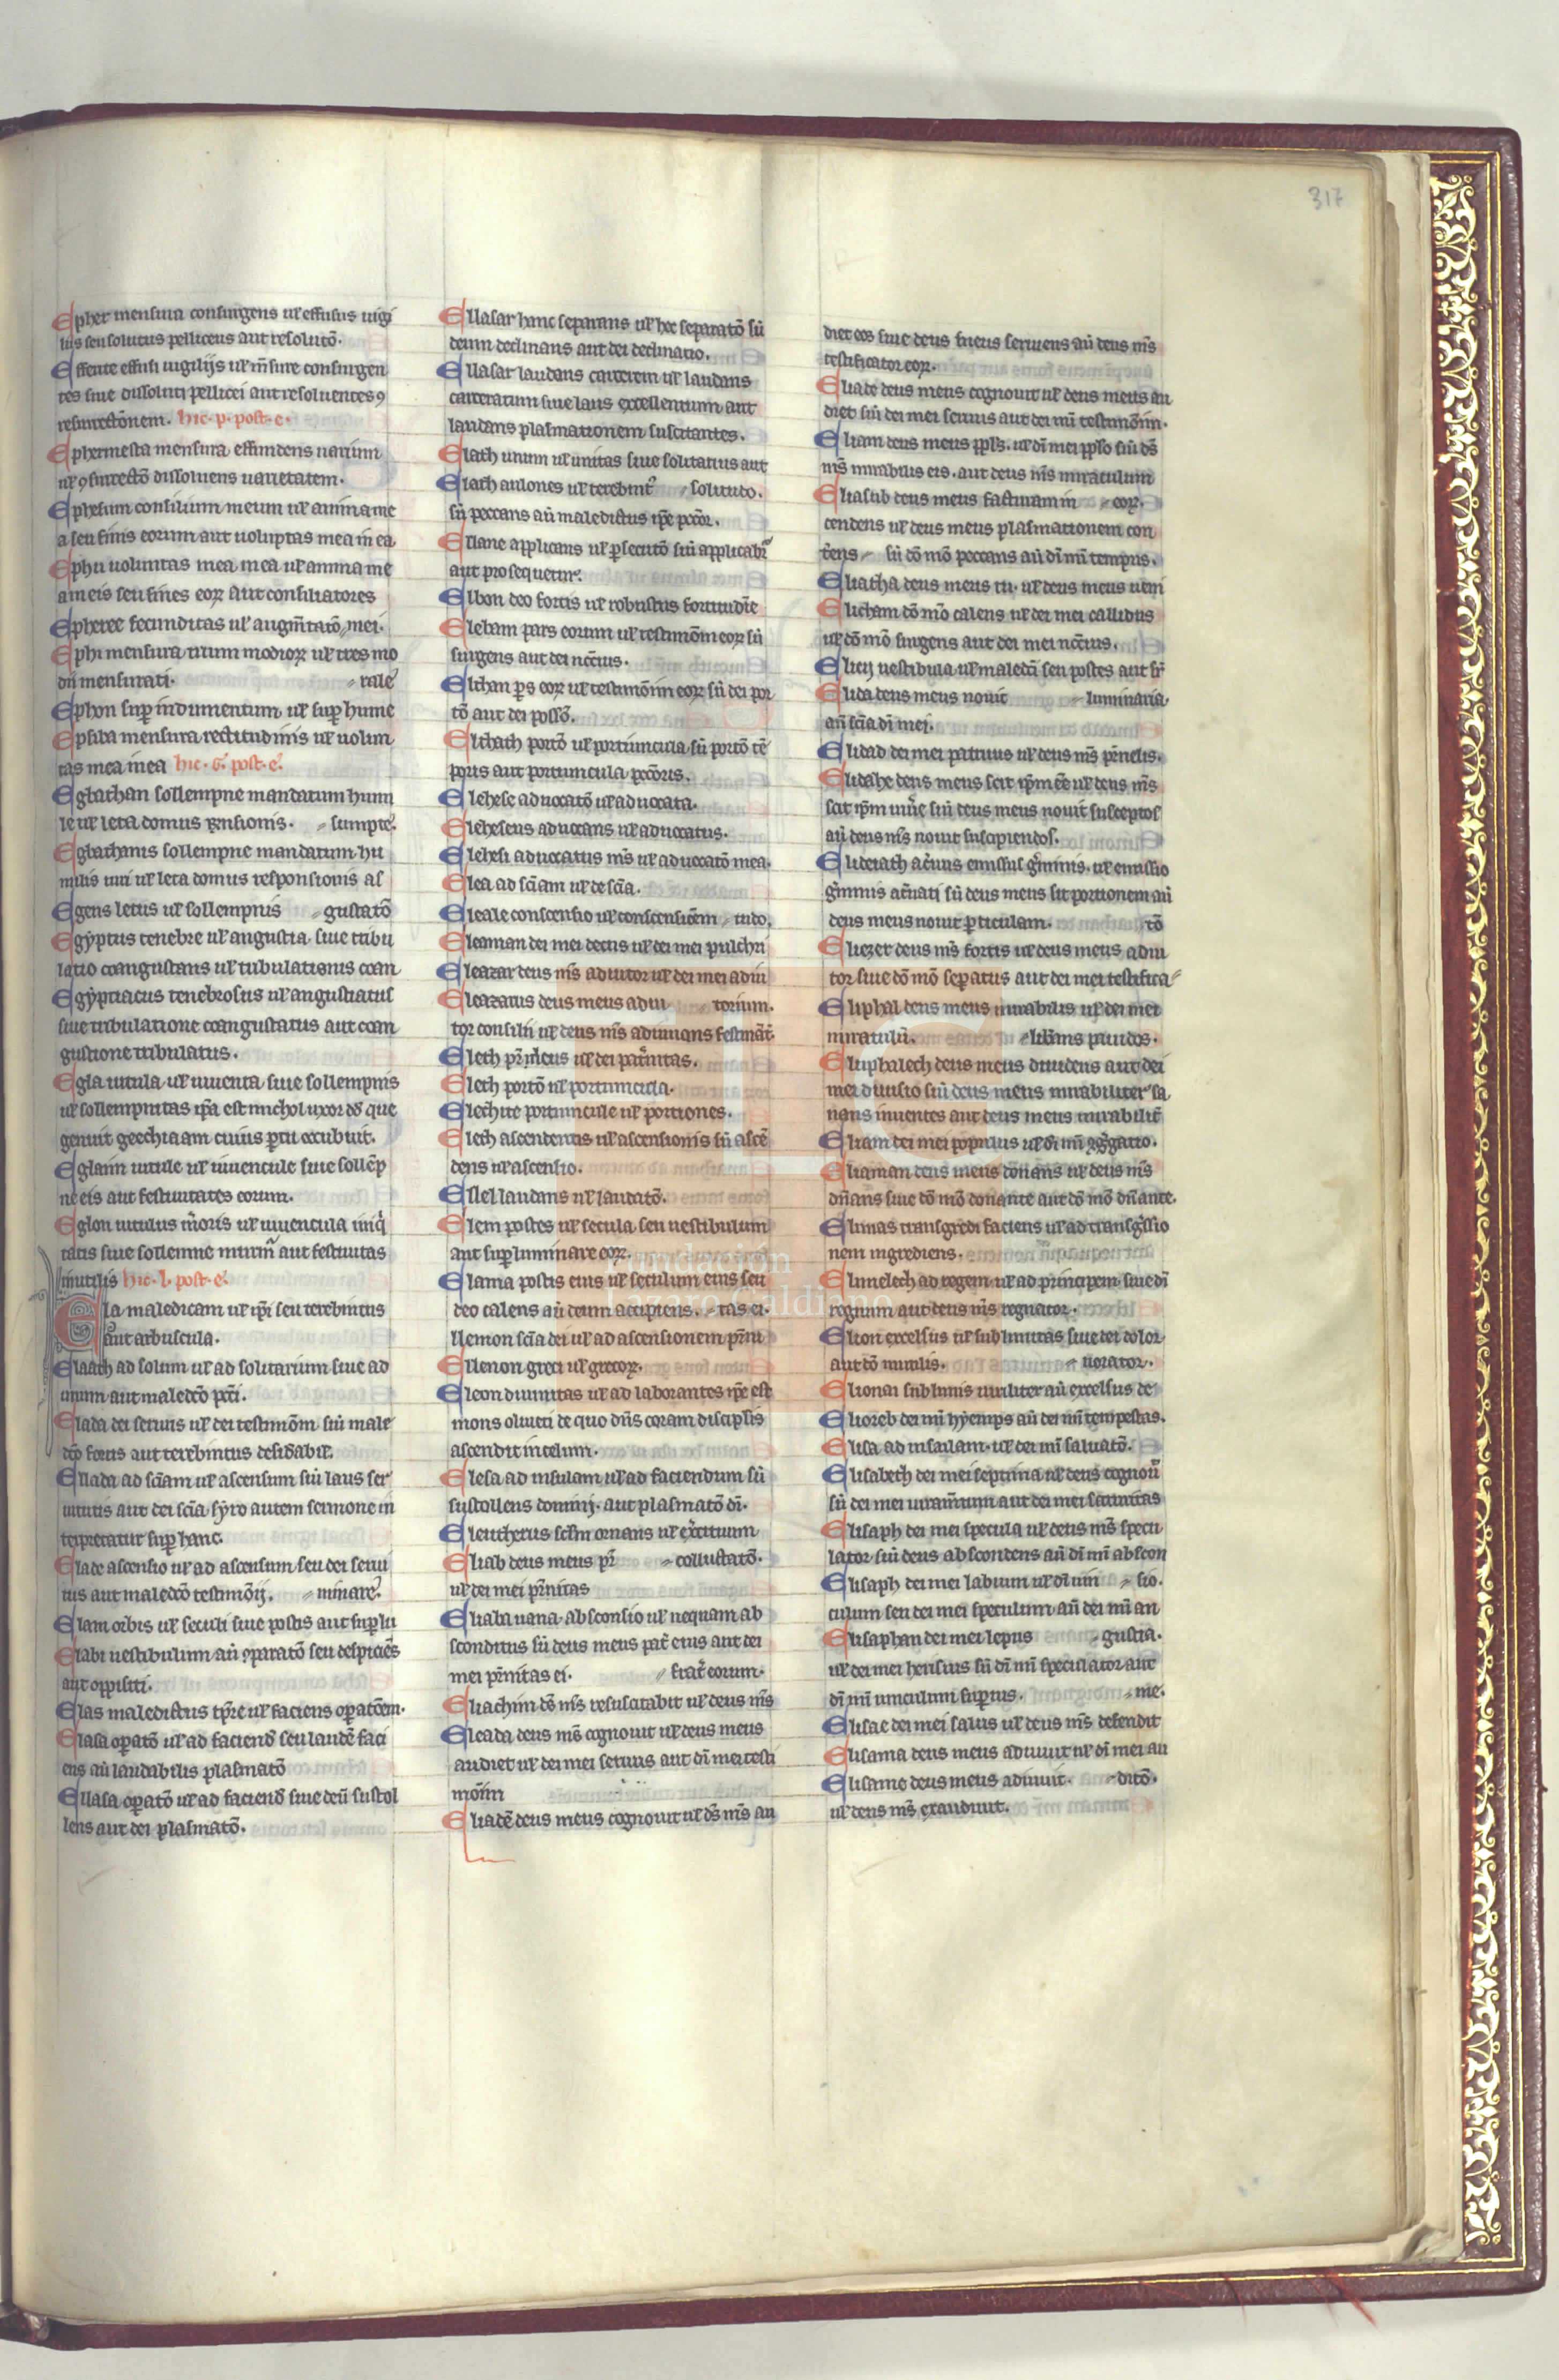 317
Epher mensura consurgens ul̓ effusus uigi
lus seu solutus pelliceus aut resolutō.
Effente effusi uigilijs ul̓ m̄sure consurgen
tes siue dissoluti pellicei aut resoluentes
resurrectōnem. hic. p. post. e.
Ephermesta mensura effundens
ul̓ ꝯsurrectō dissoluens uarietatem.
Ephesum consilium meum ul̓ anima me
a seu finis eorum aut uoluptas mea in ea
Ephu uoluntas mea mea ul̓ anima me
a in eis seu fines eoꝝ aut consiliatores
Epheree fecunditas ul̓ augm̄tatō mei.
Ephi mensura trium modioꝝ ul̓ tres mo
dii mensurati. // rale
Ephon sup̄ indumentum ul̓ sup̄ hume
Epsiba mensura rectitudinis ul̓ uolun
tas mea in ea hic. g. post. e.
Egbathan sollempne mandatum humi
le ul̓ leta domus // sumpte.
Egbathanis sollempne mandatum hu
milis uiri ul̓ leta domus responsionis as
Egens letus ul̓ sollempnis // gustatō
Egyptus tenebre ul̓ angustia siue tribu
latio coangustans ul̓ tribulationis coan
Egyptiacus tenebrosus ul̓ angustiatus
siue tribulatione coangustatus aut coan
gustione tribulatus.
Egla uitula ul̓ iuuenta siue sollempnis
ul̓ sollempnitas ip̄a est michol uxor dd̄ que
genuit geechiaam cuius p̄tu occubuit.
Eglaim uitule ul̓ iuuencule siue sollēp
ne eis aut festiuitates eorum.
Eglon uitulus m̄oris ul̓ iuuencula iniq̄
tatis siue sollemne aut festiuitas
inutilis hic. l. post. e.
Ela maledicam ul̓ ip̄i seu terebintus
aut arbuscula.
Elaath ad solum ul̓ ad solitarium siue ad
unum aut maledcō p̄cti.
Elada dei seruus ul̓ dei testimōm siū male
fortis aut terebintus
Ellada ad sc̄iam ul̓ ascensum siū laus ser
uitutis aut dei sc̄ia syro autem sermone in
terpretatur sup̄ hanc.
Elade ascensio ul̓ ad ascensum seu dei serui
tus aut maledcō testimōij. // minare.
Elam orbis ul̓ seculi siue postis aut sup̄lu
Elabi uestibulum aū ꝯparatō seu despiciēs
aut oppositi.
Elas maledictus tp̄re ul̓ faciens op̄atōem.
Elasa op̄atō ul̓ ad faciend̄ seu laudē faci
ens aū laudabilis plasmatō
Ellasa op̄atō ul̓ ad faciend̄ siue deū sustol
lens aut dei plasmatō.
Ellasar hanc separans ul̓ hec separatō siū
deum declinans aut dei declinatio.
Ellasar laudans carcerem ul̓ laudans
carceratum siue laus excellentum aut
laudans plasmationem suscitantes.
Elath unum ul̓ unitas siue solitarius aut
Elath aulones ul̓ terebint // solitudo.
siū peccans aū maledictus ip̄e pctōr.
Ellane applicans ul̓ p̄secutō siū applicabit̄
aut prosequetur.
Elbon deo fortis ul̓ robustus fortitudīe
Elebam pars eorum ul̓ testimōm eoꝝ siū
surgens aut dei nctīus.
Elchan p̄s eoꝝ ul̓ testimōm eoꝝ siū dei por
tō aut dei possō.
Elchath portō ul̓ portiuncula siū portō tē
poris aut portiuncula pctōris.
Elehese aduocatō ul̓ aduocata.
Elehesus aduocans ul̓ aduocatus.
Elehesi aduocatus ms̄ ul̓ aduocatō mea.
Elea ad sc̄iam ul̓ de sc̄ia.
Eleale conscensio ul̓ conscensiōem // tudo.
Eleaman dei mei dectis ul̓ dei mei pulchri
Eleazar deus ms̄ adiutor ul̓ dei mei adiu
Eleazarus deus meus adiu // torium.
tor consilii ul̓ deus ms̄ adiuuans festināt̄.
Elech pr̄meus ul̓ dei pat̄nitas.
Elech portō ul̓ portiuncula.
Elechite portiuncule ul̓ portiones.
Elech ascendentis ul̓ ascensionis siū ascē
dens ul̓ ascensio.
Ellel laudans ul̓ laudatō.
Elem postes ul̓ secula seu uestibulum
aut sup̄luminare eoꝝ.
Elama postis eius ul̓ seculum eius seu
deo calens aū deum accipiens. // tas ei.
llemon sc̄ia dei ul̓ ad ascensionem pr̄ni
Ellenon greci ul̓ grecoꝝ.
Eleon diuinitas ul̓ ad laborantes ip̄e est
mons oliueti de quo dn̄s coram discip̄lis
ascendit in celum.
Elesa ad insulam ul̓ ad faciendum siū
sustollens dominij. aut plasmatō dī.
Eleutherus scīsm ornans ul̓ ex̄citium
Eliab deus meus pr̄ // collustatō.
ul̓ dei mei pr̄nitas
Eliaba uana absconsio ul̓ nequam ab
sconditus siū deus meus pat̄ eius aut dei
mei pr̄nitas ei. // frat̄ eorum.
Eliachim ds̄ ms̄ resuscitabit ul̓ deus ms̄
Eleada deus ms̄ cognouit ul̓ deus meus
audiet ul̓ dei mei seruus aut dī mei testi
mōm
Eliadē deus meus cognouit ul̓ ds̄ ms̄ au
diet eos siue deus meus seruiens aū deus ms̄
testificator eoꝝ.
Eliade deus meus cognouit ul̓ deus meus au
diet siū dei mei seruus aut dei mī testimōm.
Eliam deus meus ppl̄s. ul̓ dī mei pplo siū ds̄
ms̄ mirabilis eis. aut deus ms̄ miraculum
Eliasub deus meus facturam in // eoꝝ.
cendens ul̓ deus meus plasmationem con
t̄ens // siū dō mō peccans aū dī mī tempus.
Eliatha deus meus tu. ul̓ deus meus ueni
Elicham dō mō calens ul̓ dei mei callidus
ul̓ dō mō surgens aut dei mei nctīus.
Elicij uestibula ul̓ maledcī seu postes aut sr̄
Elida deus meus nouit // luminaria
aū sc̄ia dī mei.
Elidad dei mei patruus ul̓ deus ms̄ pr̄uelis.
Elidahe deus meus scit ip̄m ēē ul̓ deus ms̄
scit ip̄m siū deus meus nouit susceptos
aū deus ms̄ nouit suscipiendos.
Elidetath aceruus emissus ḡminis. ul̓ emissio
ḡminis siū deus meus scit portionem aū
deus meus nouit p̄ticulam. tō
Eliezer deus ms̄ fortis ul̓ deus meus adiu
tor siue dō mō sep̄atus aut dei mei testifica //
Eliphal deus meus mirabilis ul̓ dei mei
miraculū. // lib̄ans pauidos.
Eliphalech deus meus diuidens aut dei
mei diuisio siū deus meus mirabiliter sa
nans iuuentes aut deus meus mirabilit̄
Eliam dei mei populus ul̓ dī mī ꝯgregatio.
Eliaman deus meus donans ul̓ deus ms̄
dn̄ans siue dō mō donante aut dō mō dn̄ante.
Elimas transgredi faciens ul̓ ad transgressio
nem ingrediens.
Elimelech ad regem ul̓ ad principem siue dī
regnum aut deus ms̄ regnator.
Elion excelsus ul̓ sublimitas siue dei dolor
aut dō inutilis. // uorator.
Elionai sublimis uiriliter aū excelsus de
Elioreb dei mī hyemps aū dei mī tempestas.
Elisa ad insulam. ul̓ dei mī saluatō.
Elisabeth dei mei septima ul̓ deus cognouit
siū dei mei iuramtum aut dei mei saturitas
Elisaph dei mei specula ul̓ deus ms̄ specu
lator siū deus abscondens aū dī mī abscon
Elisaph dei mei labium ul̓ dī uin // sio.
culum seu dei mei speculum aū dei mī an
Elisaphan dei mei lepus // gustia.
ul̓ dei mei hensius siū dī mī speculator aut
dī mī umculum sup̄ius. // me.
Elisae dei mei salus ul̓ deus ms̄ defendit
Elisama deus meus adiuuit ul̓ dī mei au
Elisame deus meus adiuuit. // ditō.
ul̓ deus ms̄ exaudiuit.
Fundación
Lázaro Galdiano